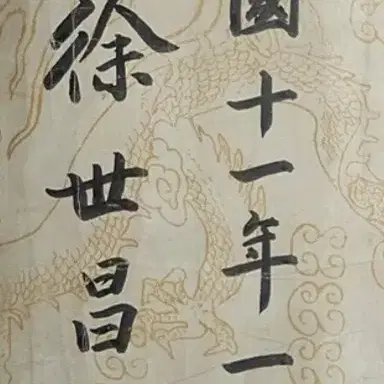 國十一年一
徐世昌